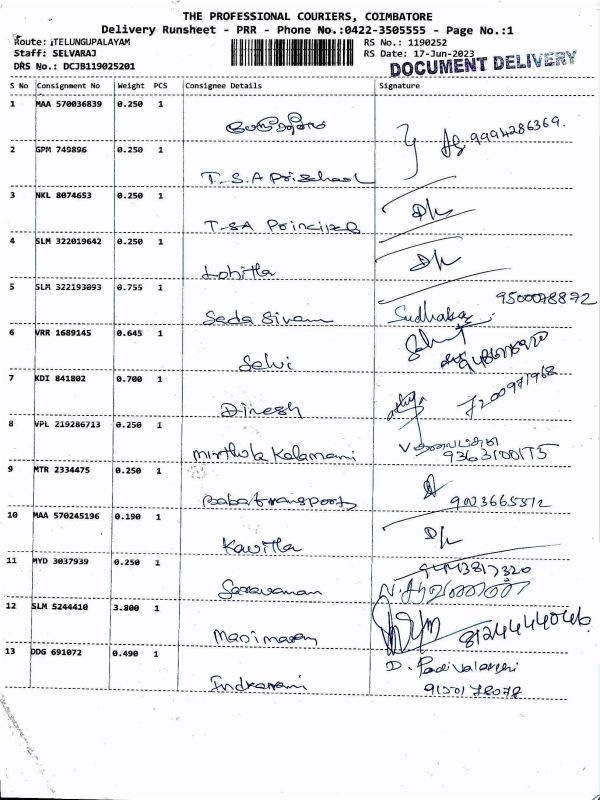 THE PROFESSIONAL COURIERS, COIMBATORE
Delivery Runsheet - PRR - Phone No.:0422-3505555 - Page No.:1
Route: :TELUNGUPALAYAM RS No.: 1190252
Staff: SELVARAJ RS Date: 17-Jun-2023
DRS No.: DCJB119025201 DOCUMENT DELIVERY
S No Consignment No Weight PCS Consignee Details Signature
1 MAA 570036839 0.250 1
9994286369.
2 GPM 749896 0.250 1
T.S.A
3 NKL 8074653 0.250 1
T-SA D/K
4 SLM 322019642 0.250 1
Lohitha D/K
5 SLM 322193093 0.755 1 9500078892
Seda Sivam Sudhakar
6 VRR 1689145 0.645 1
Selvi
7 KDI 841802 0.700 1 7200971968
Dinesh
8 VPL 219286713 0.250 1
9363100175
9 MTR 2334475 0.250 1
Baba transport
10 MAA 570245196 0.190 1
Kavitha D/K
11 MYD 3037939 0.250 1 9443817320
Saravanan
12 SLM 5244410 3.800 1
Manimaran 8124444046
13 DDG 691072 0.490 1 D.
Indranani